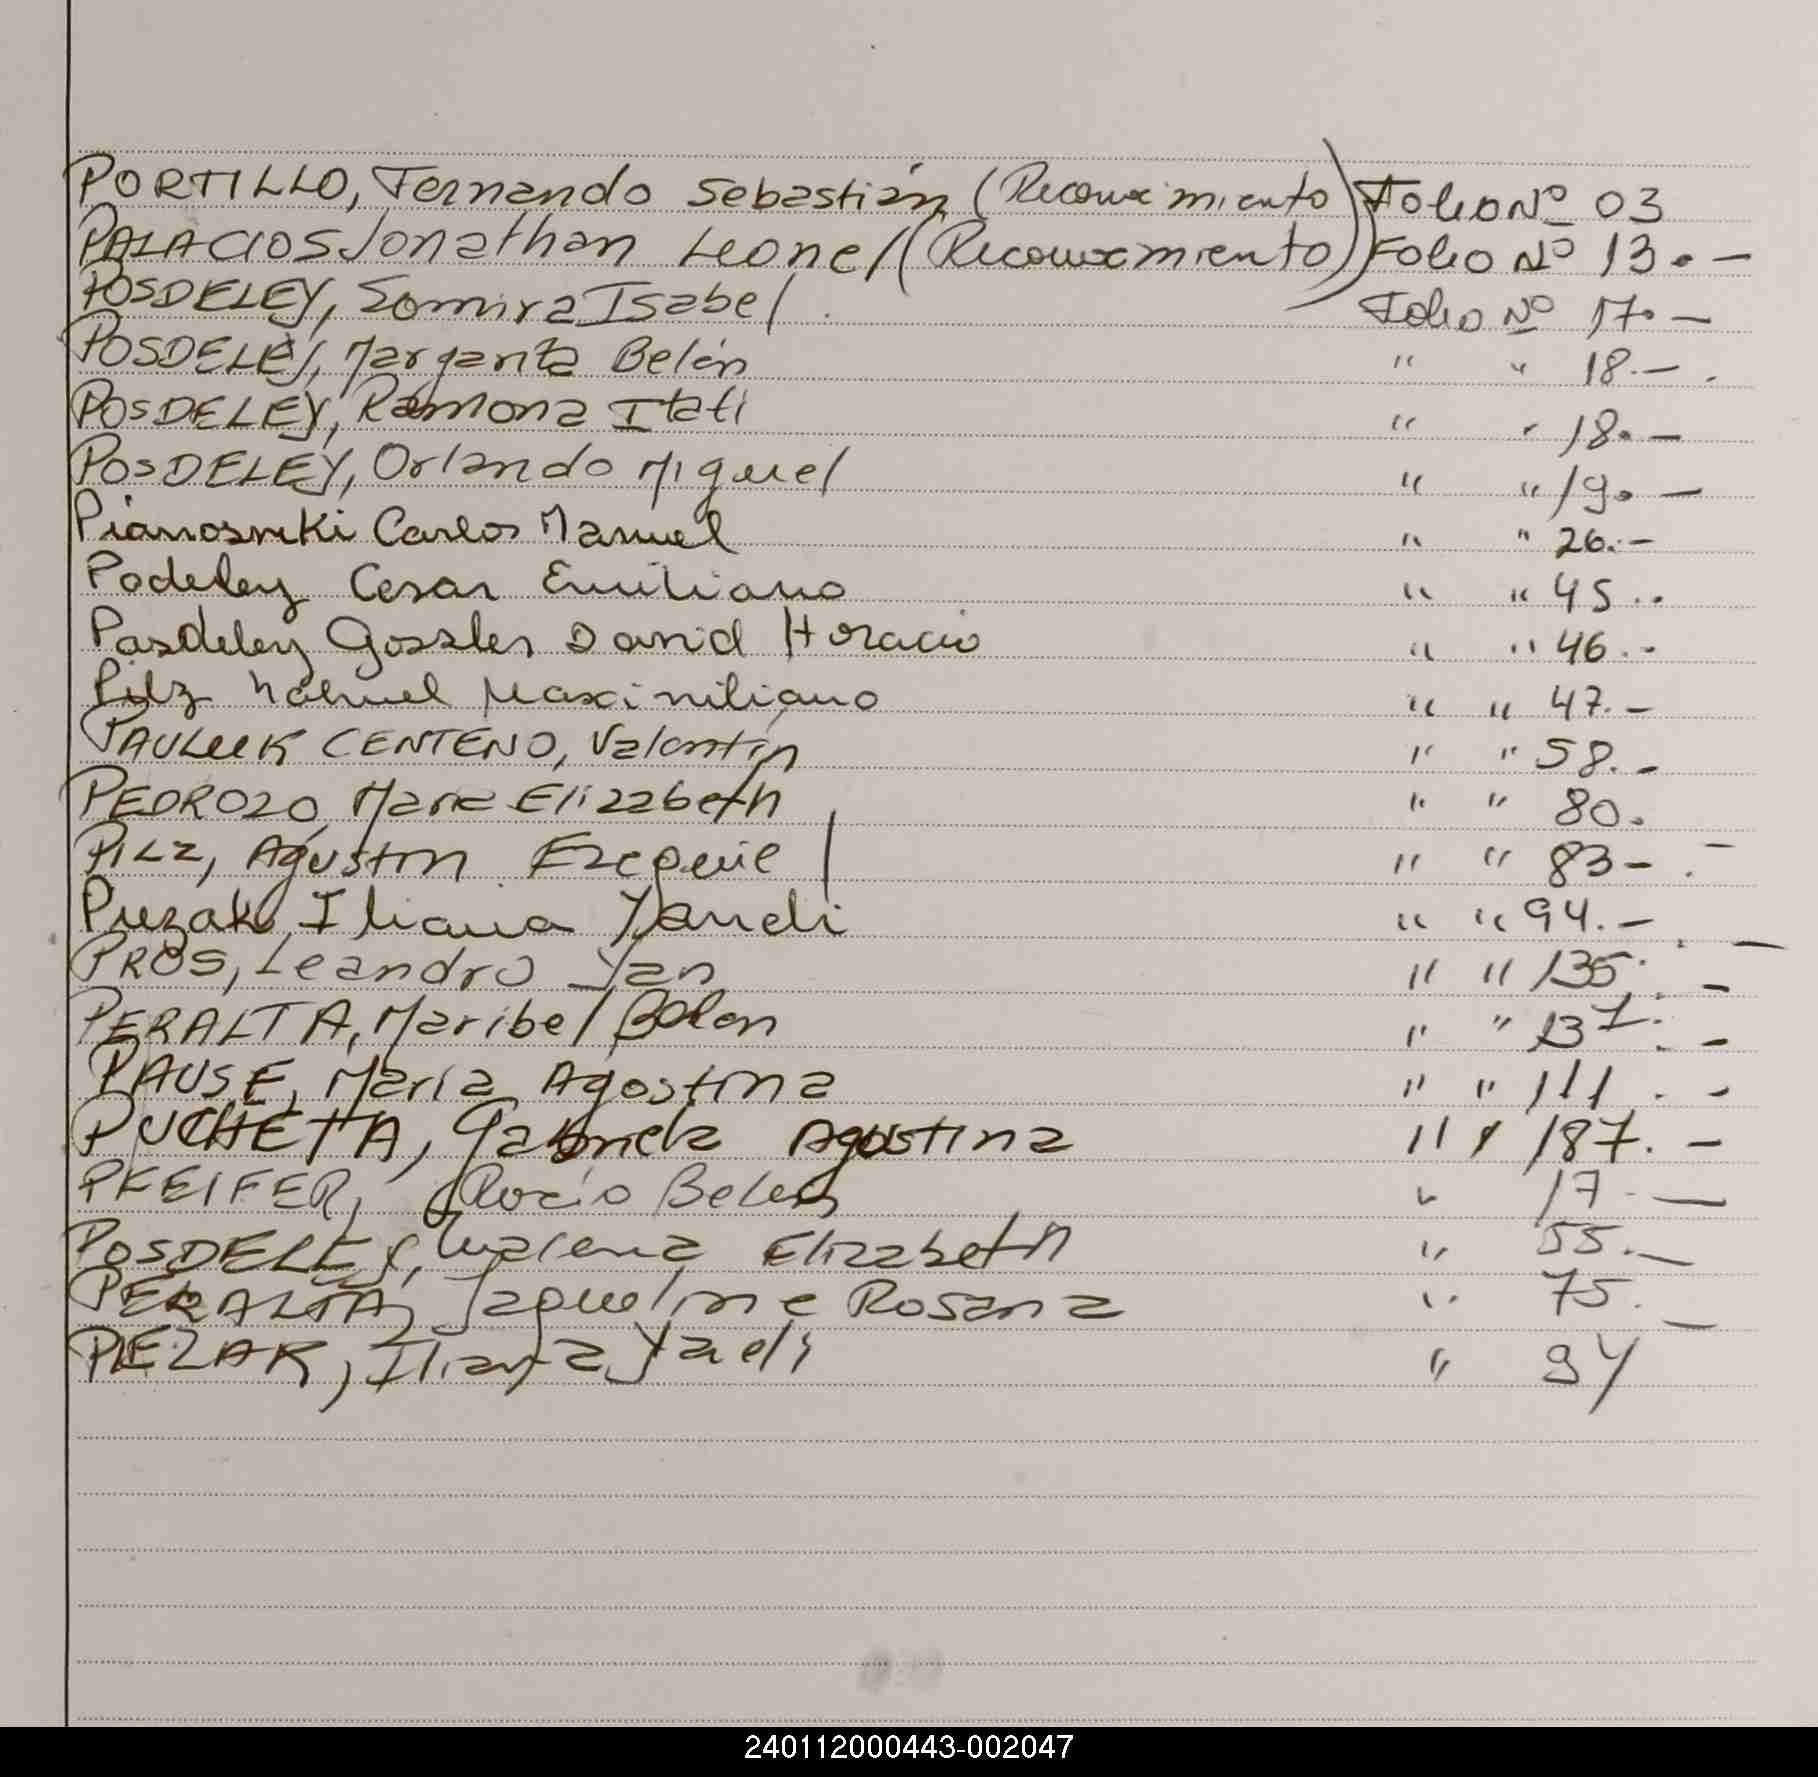 PORTILLO, Fernando Sebastián (Reconocimiento) Folio Nº 03
PALACIOS Jonathan Leonel (Reconocimiento) Folio Nº 13.-
POSDELEY, Somira Isabel. Folio Nº 17.-
POSDELEY, Margarita Belén " " 18.-.
POSDELEY, Ramona Itati " " 18.-
POSDELEY, Orlando Miguel " " 19.-
Carlos Manuel " " 26.-
Podeley Cesar Emiliano " " 45..
Posdeley David Horacio " " 46.-
Pilz Nahuel Maximiliano " " 47.-
PAULUK CENTENO, Valentin " " 58.-
PEDROZO, Maria Elizabeth " " 80.
PILZ, Agustin Ezequiel " " 83-.-
Puzak, Iliana Yaneli " " 94.-
PROS, Leandro Yan " " 135.-
PERALTA, Maribel Belen " " 137.-
PAUSE, Maria Agostina " " 111.-
PUCHETTA, Gabriela Agostina " " 187.-
PFEIFER, Rocio Belen " 17.-
POSDELEY, Elizabeth " 55.-
PERALTA, Jaqueline Rosana " 75.-
Iliana Yaeli " 94
240112000443-002047